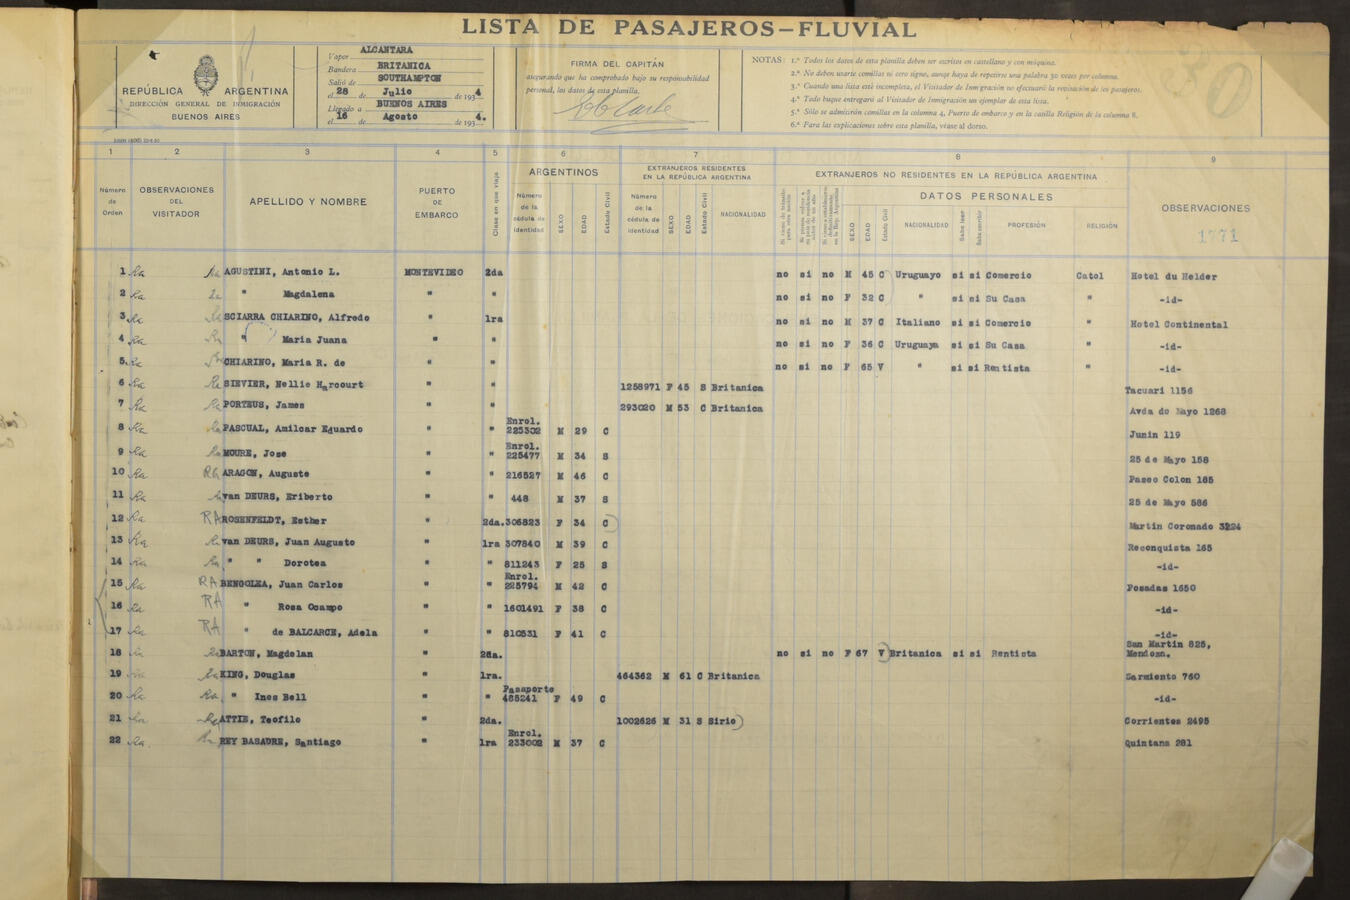 LISTA DE PASAJEROS-FLUVIAL
REPÚBLICA ARGENTINA
DIRECCIÓN GENERAL DE INMIGRACIÓN
BUENOS AIRES
Vapor ALCANTARA
Bandera BRITANICA
Salió de SOUTHAMPTON
el 28 de Julio de 1934
Llegado a BUENOS AIRES
el 16 de Agosto de 1934.
FIRMA DEL CAPITÁN
asegurando que ha comprobado bajo su responsabilidad
personal, los datos de esta planilla.
NOTAS: 1.ª Todos los datos de esta planilla deben ser escritos en castellano y con máquina.
2.ª No deben usarse comillas ni cero signo, aunque haya de repetirse una palabra 30 veces por columna.
3.ª Cuando una lista esté incompleta, el Visitador de Inmigración no efectuará la revisación de los pasajeros.
4.ª Todo buque entregará al Visitador de Inmigración un ejemplar de esta lista.
5.ª Sólo se admitirán comillas en la columna 4, Puerto de embarco y en la casilla Religión de la columna 8.
6.ª Para las explicaciones sobre esta planilla, véase al dorso.
30
1 2 3 4 5 6 7 8 9
Número de Orden
OBSERVACIONES DEL VISITADOR
APELLIDO Y NOMBRE
PUERTO DE EMBARCO
Clase en que viaja
ARGENTINOS
Número de la cédula de identidad SEXO EDAD Estado Civil
EXTRANJEROS RESIDENTES EN LA REPÚBLICA ARGENTINA
Número de la cédula de identidad SEXO EDAD Estado Civil NACIONALIDAD
EXTRANJEROS NO RESIDENTES EN LA REPÚBLICA ARGENTINA
DATOS PERSONALES
SEXO EDAD Estado Civil NACIONALIDAD Sabe leer Sabe escribir PROFESIÓN RELIGIÓN
OBSERVACIONES
1771
1 Ra AGUSTINI, Antonio L. MONTEVIDEO 2da no si no M 45 C Uruguayo si si Comercio Catol Hotel du Helder
2 Ra " Magdalena " " no si no F 32 C " si si Su Casa " -id-
3 Ra SCIARRA CHIARINO, Alfredo " 1ra no si no M 37 C Italiano si si Comercio " Hotel Continental
4 Ra " Maria Juana " " no si no F 36 C Uruguaya si si Su Casa " -id-
5 Ra CHIARINO, Maria R. de " " no si no F 65 V " si si Rentista " -id-
6 Ra SIEVIER, Nellie Harcourt " " 1258971 F 45 S Britanica Tacuari 1156
7 Ra PORTEUS, James " " 293020 M 53 C Britanica Avda de Mayo 1268
8 Ra PASCUAL, Amilcar Eduardo " " Enrol. 225302 M 29 C Junin 119
9 Ra MOURE, Jose " " Enrol. 225477 M 34 S 25 de Mayo 158
10 Ra RA ARAGON, Auguste " " 216527 M 46 C Paseo Colon 185
11 Ra van DEURS, Eriberto " " 448 M 37 S 25 de Mayo 586
12 Ra RA ROSENFELDT, Esther " 2da. 306823 F 34 C Martin Coronado 3224
13 Ra van DEURS, Juan Augusto " 1ra 307840 M 39 C Reconquista 165
14 Ra " " Dorotea " " 811243 F 25 S -id-
15 Ra RA BENGOLEA, Juan Carlos " " Enrol. 225794 M 42 C Posadas 1650
16 Ra RA " Rosa Ocampo " " 1601491 F 38 C -id-
17 Ra RA " de BALCARCE, Adela " " 810531 F 41 C -id-
18 Ra BARTON, Magdelan " 2da. no si no F 67 V Britanica si si Rentista San Martin 825, Mendoza.
19 Ra KING, Douglas " 1ra. 464362 M 61 C Britanica Sarmiento 760
20 Ra " Ines Bell " " Pasaporte 485241 F 49 C -id-
21 Ra ATTIE, Teofilo " 2da. 1002626 M 31 S Sirio Corrientes 2495
22 Ra REY BASADRE, Santiago " 1ra Enrol. 233002 M 37 C Quintana 281